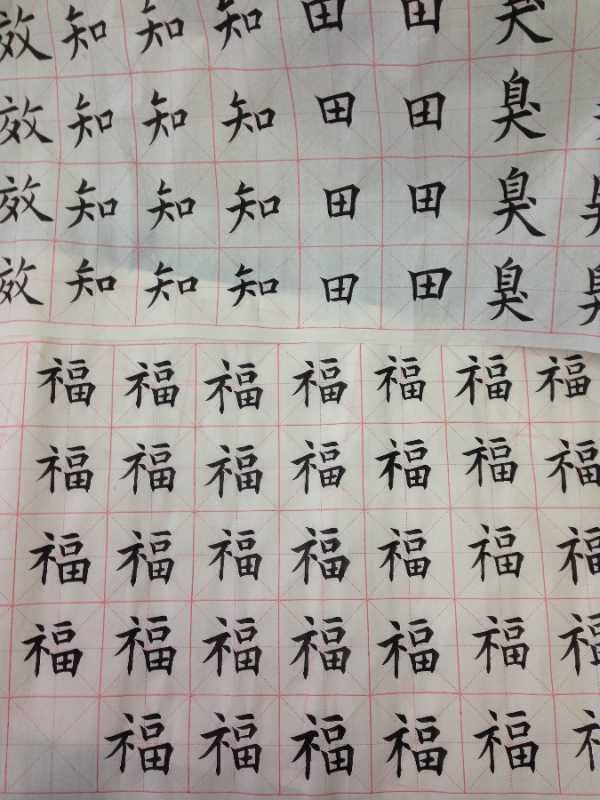 效知知知田田臭
效知知知田田臭
效知知知田田臭
效知知知田田臭
福福福福福福福
福福福福福福福
福福福福福福福
福福福福福福福
福福福福福